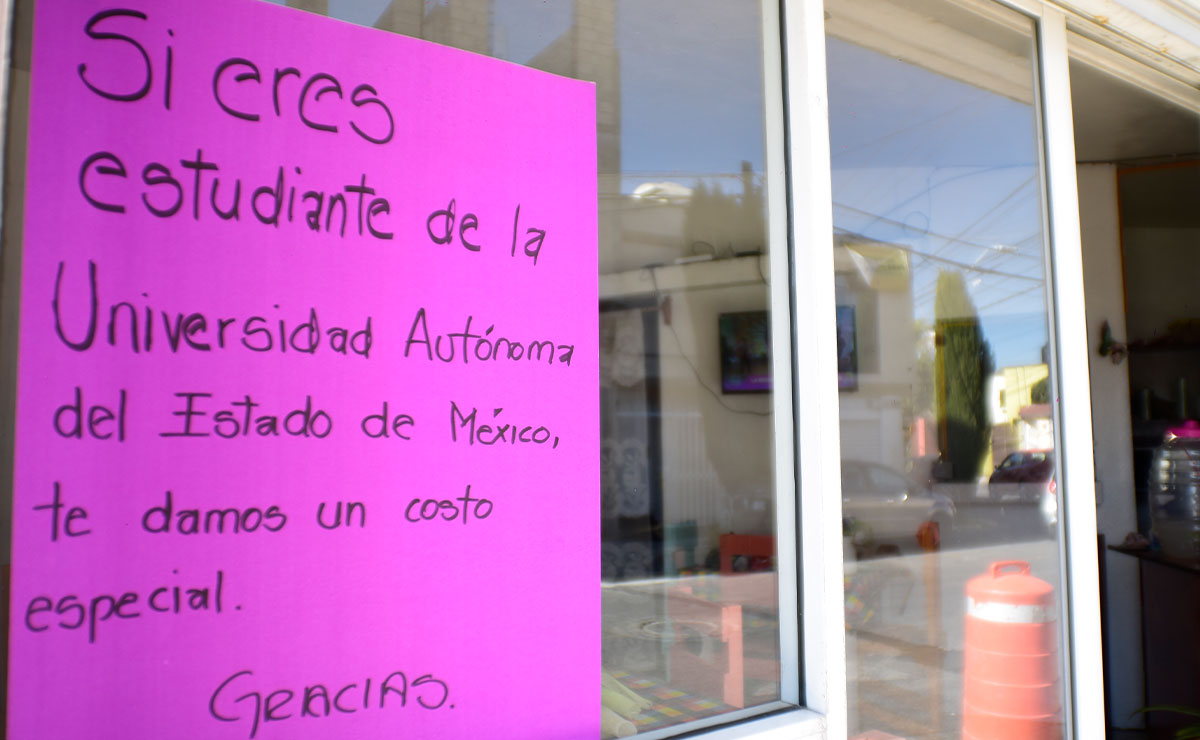 Si eres
estudiante de la
Universidad Autónoma
del Estado de México,
te damos un costo
especial.
GRACIAS.